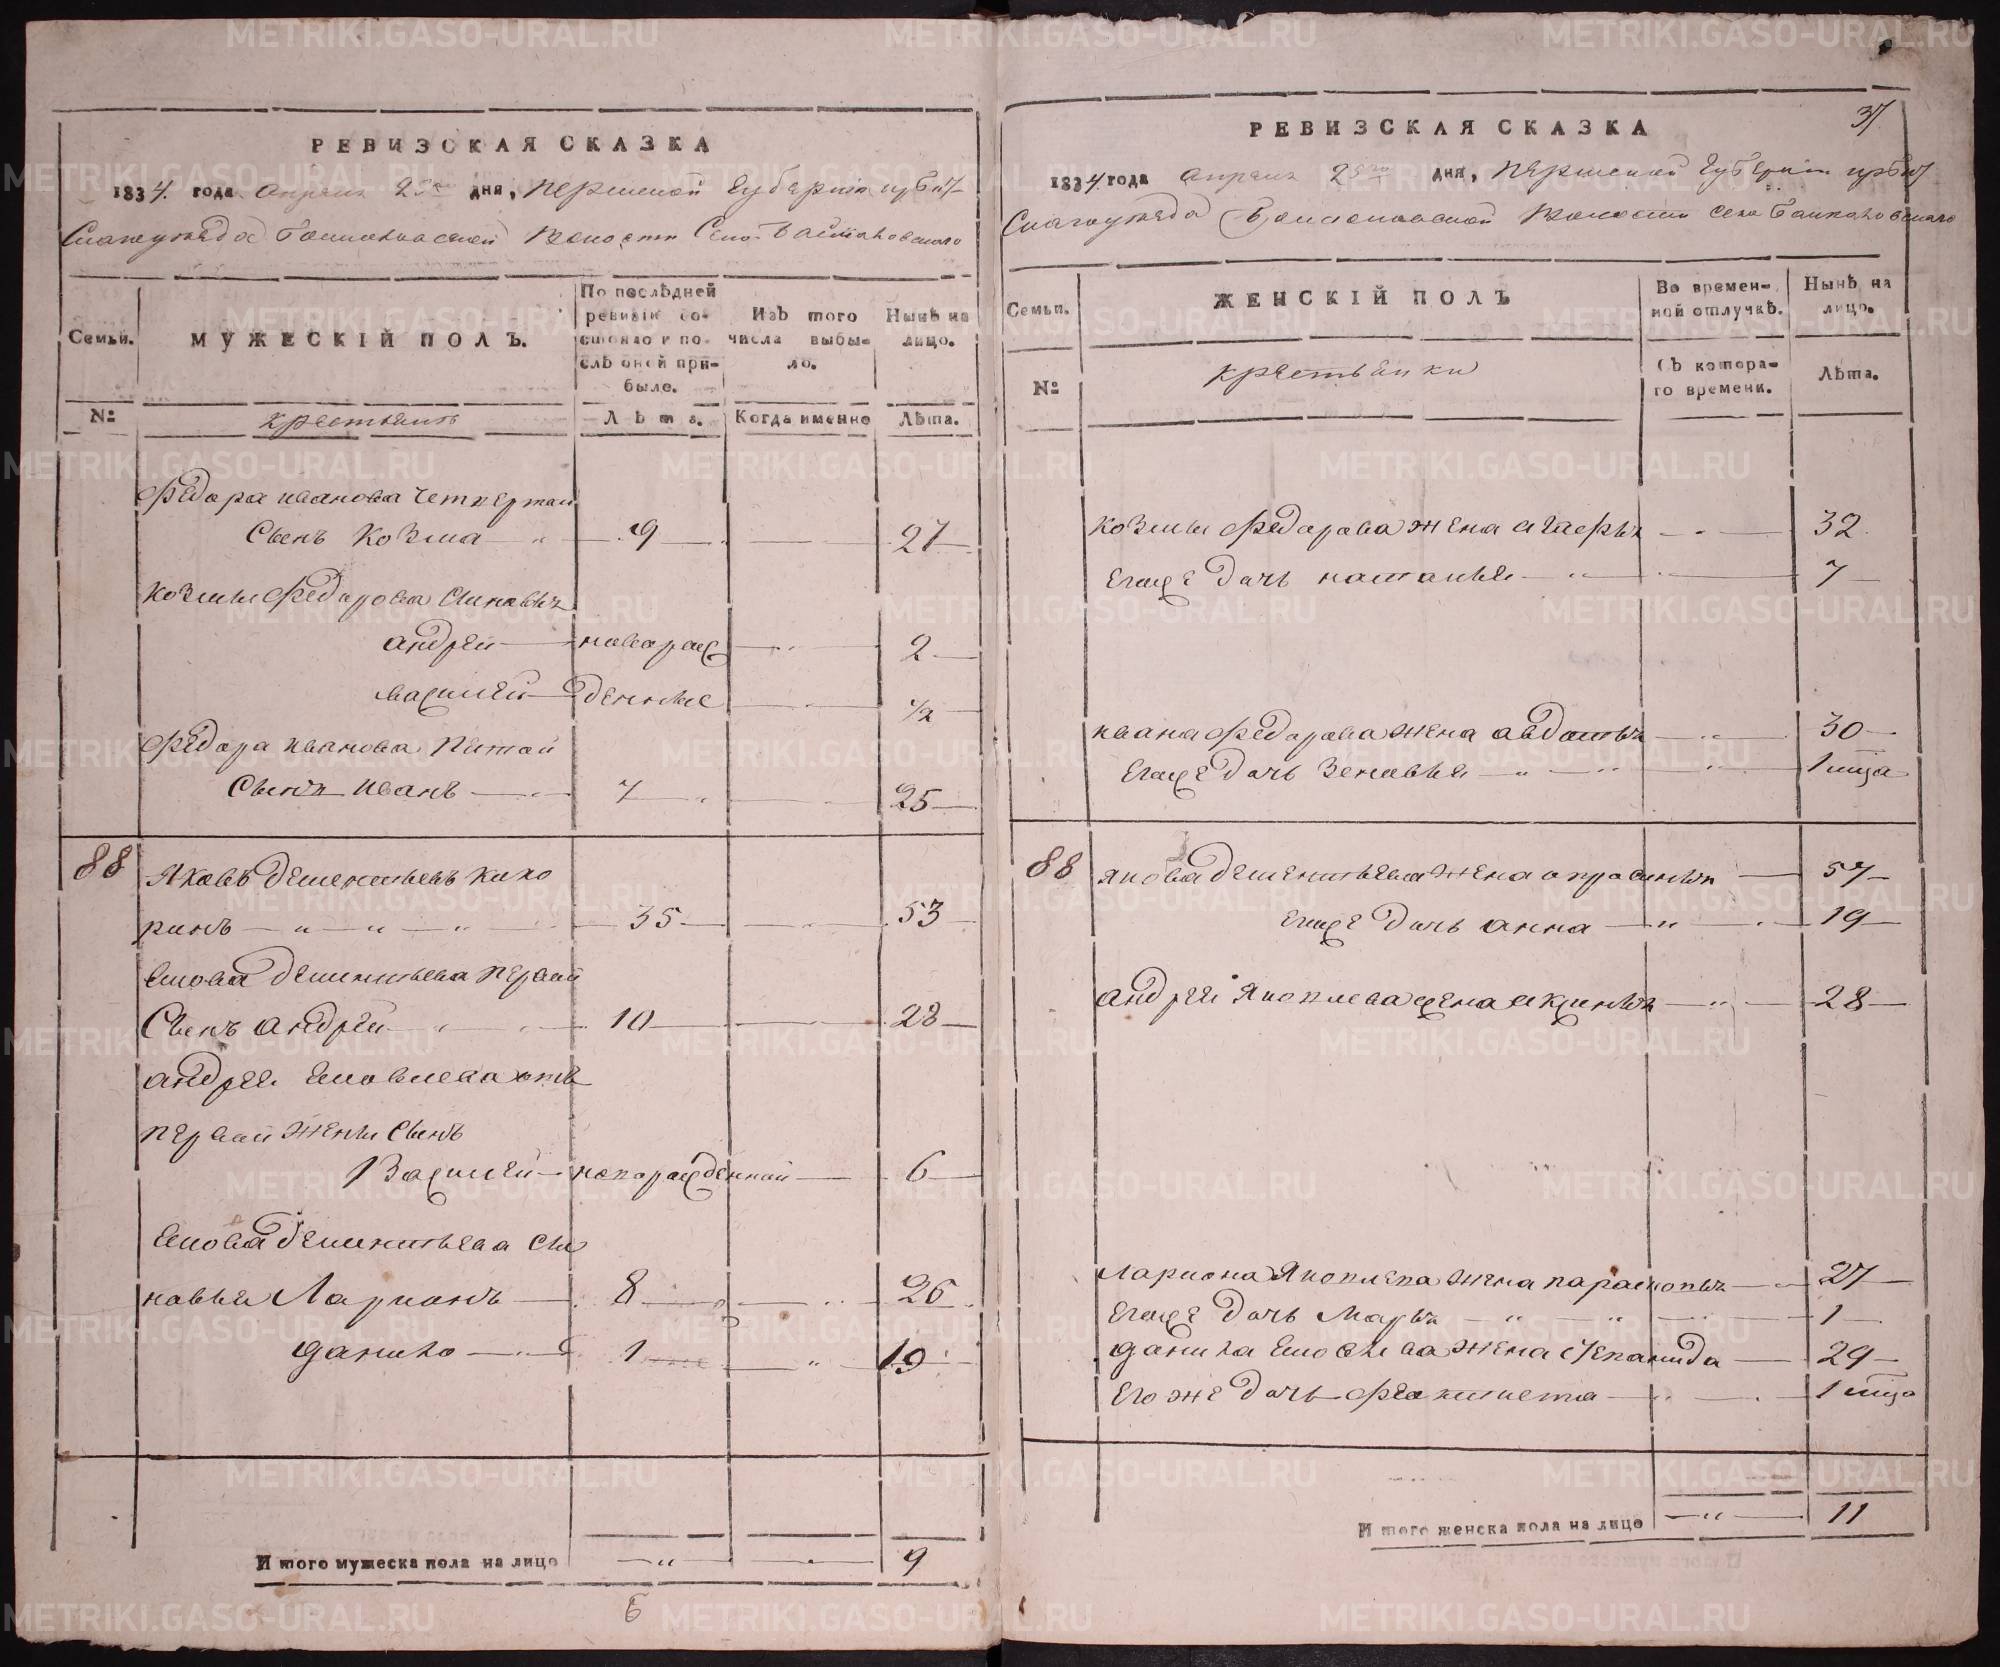 РЕВИЗСКАЯ СКАЗКА
1834. года апреля 25го дня, пермской губерніи ирбит-
скаго уезда Байкаловской волости села Байкаловскаго
Семьи.
МУЖЕСКІЙ ПОЛЪ.
По послѣдней ревизіи состояло и послѣ оной прибыло.
Изъ того числа выбыло.
Нынѣ на лицо.
№
крестьянъ
Лѣта.
Когда именно
Лѣта.
Федора иванова четвертой
Сынъ Козма 9 27
козмы Федорова сыновья
андрей новорож 2
василей денные 1/2
Федора иванова пятой
Сынъ иванъ 7 25
88 Яковъ дементьевъ кико
ринъ 35 53
Якова дементьева первой
Сынъ андрей 10 28
андрея Яковлева отъ
первой жены сынъ
Василей новорожденной 6
Якова дементьева сы
новья Ларионъ 8 26
данило 1 19
Итого мужеска пола на лицо 9
6
37
РЕВИЗСКАЯ СКАЗКА
1834. года апреля 25го дня, пермской губерніи ирбит
скаго уезда Байкаловской волости села Байкаловскаго
Семьи.
ЖЕНСКІЙ ПОЛЪ
Во временной отлучкѣ.
Нынѣ на лицо.
№
крестьянки
Съ котораго времени.
Лѣта.
козмы Федорова жена агафья 32
Егоже дочь наталья 7
ивана Федорова жена авдотья 30
Егоже дочь Зеновья 1 мца
88 якова дементьева жена опросинья 57
Егоже дочь анна 19
андрея Яковлева жена аксинья 28
Лариона Яковлева жена парасковья 27
Егоже дочь Марья 1
данила Яковлева жена степанида 29
Его же дочь феоктиста 1 мца
Итого женска пола на лицо 11
METRIKI.GASO-URAL.RU